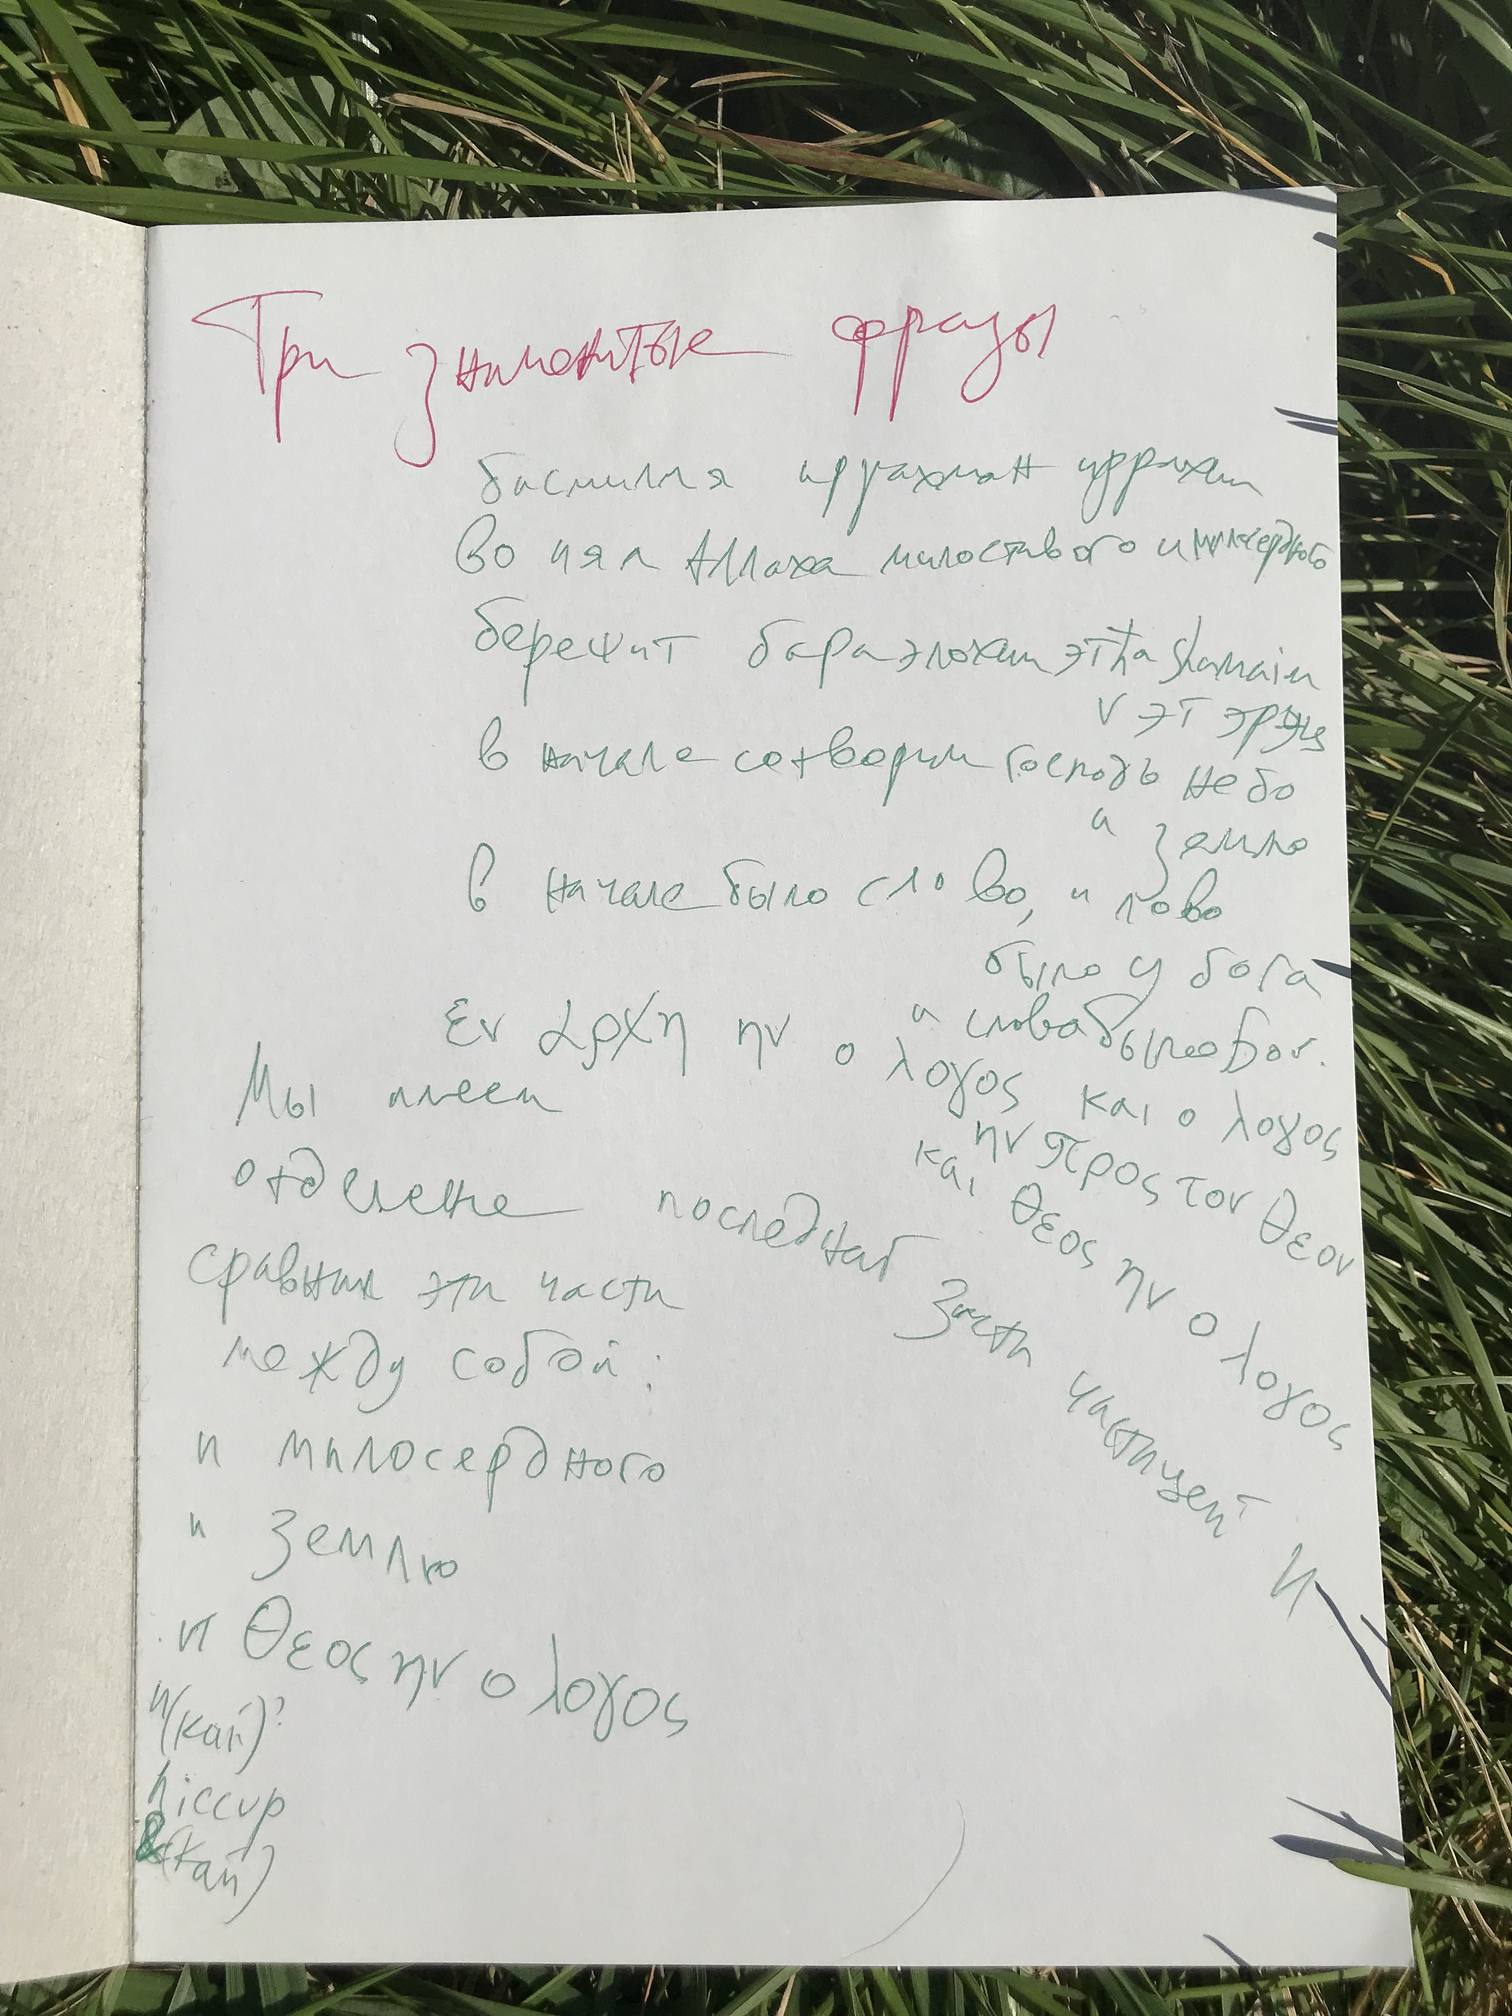 Три знаменитые фразы
басмилля иррахман иррахим
Во имя Аллаха милостивого и милосердного
берешит бара элохим эт ha shamaim
v эт эрэц
в начале сотворил господь небо
и землю
в начале было слово, и слово
было у бога
и слово было Бог.
εν αρχη ην ο λογος και ο λογος
ην προς τον θεον
και θεος ην ο λογος
Мы имеем
отделение последнй части частицей И
сравним эти части
между собой:
и милосердного
и землю
и θεος ην ο λογος
и (кай)?
hiccup
&(кай)